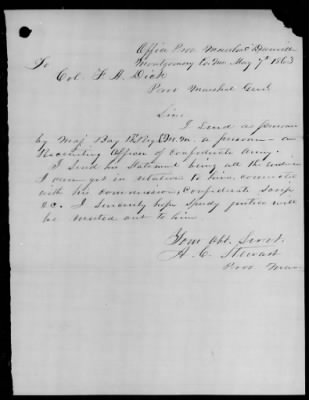 Office Prov Marshal Danville
Montgomery Co Mo May 7th 1863
To
Col. F. A. Dick
Prov Marshal Genl
Sir;
I send as prisoner
by Maj Day E.M.M. a person - a
Recruiting Officer of Confederate Army.
I send his Statement being all the evidence
I can get in relation to him, connected
with his commission, Confederate
&c. I sincerely hope speedy justice will
be meted out to him.
Your Obt. Servt.
A. C. Stewart
Prov Mar